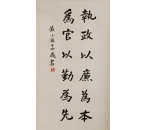 執政以廉為本
為官以勤為先